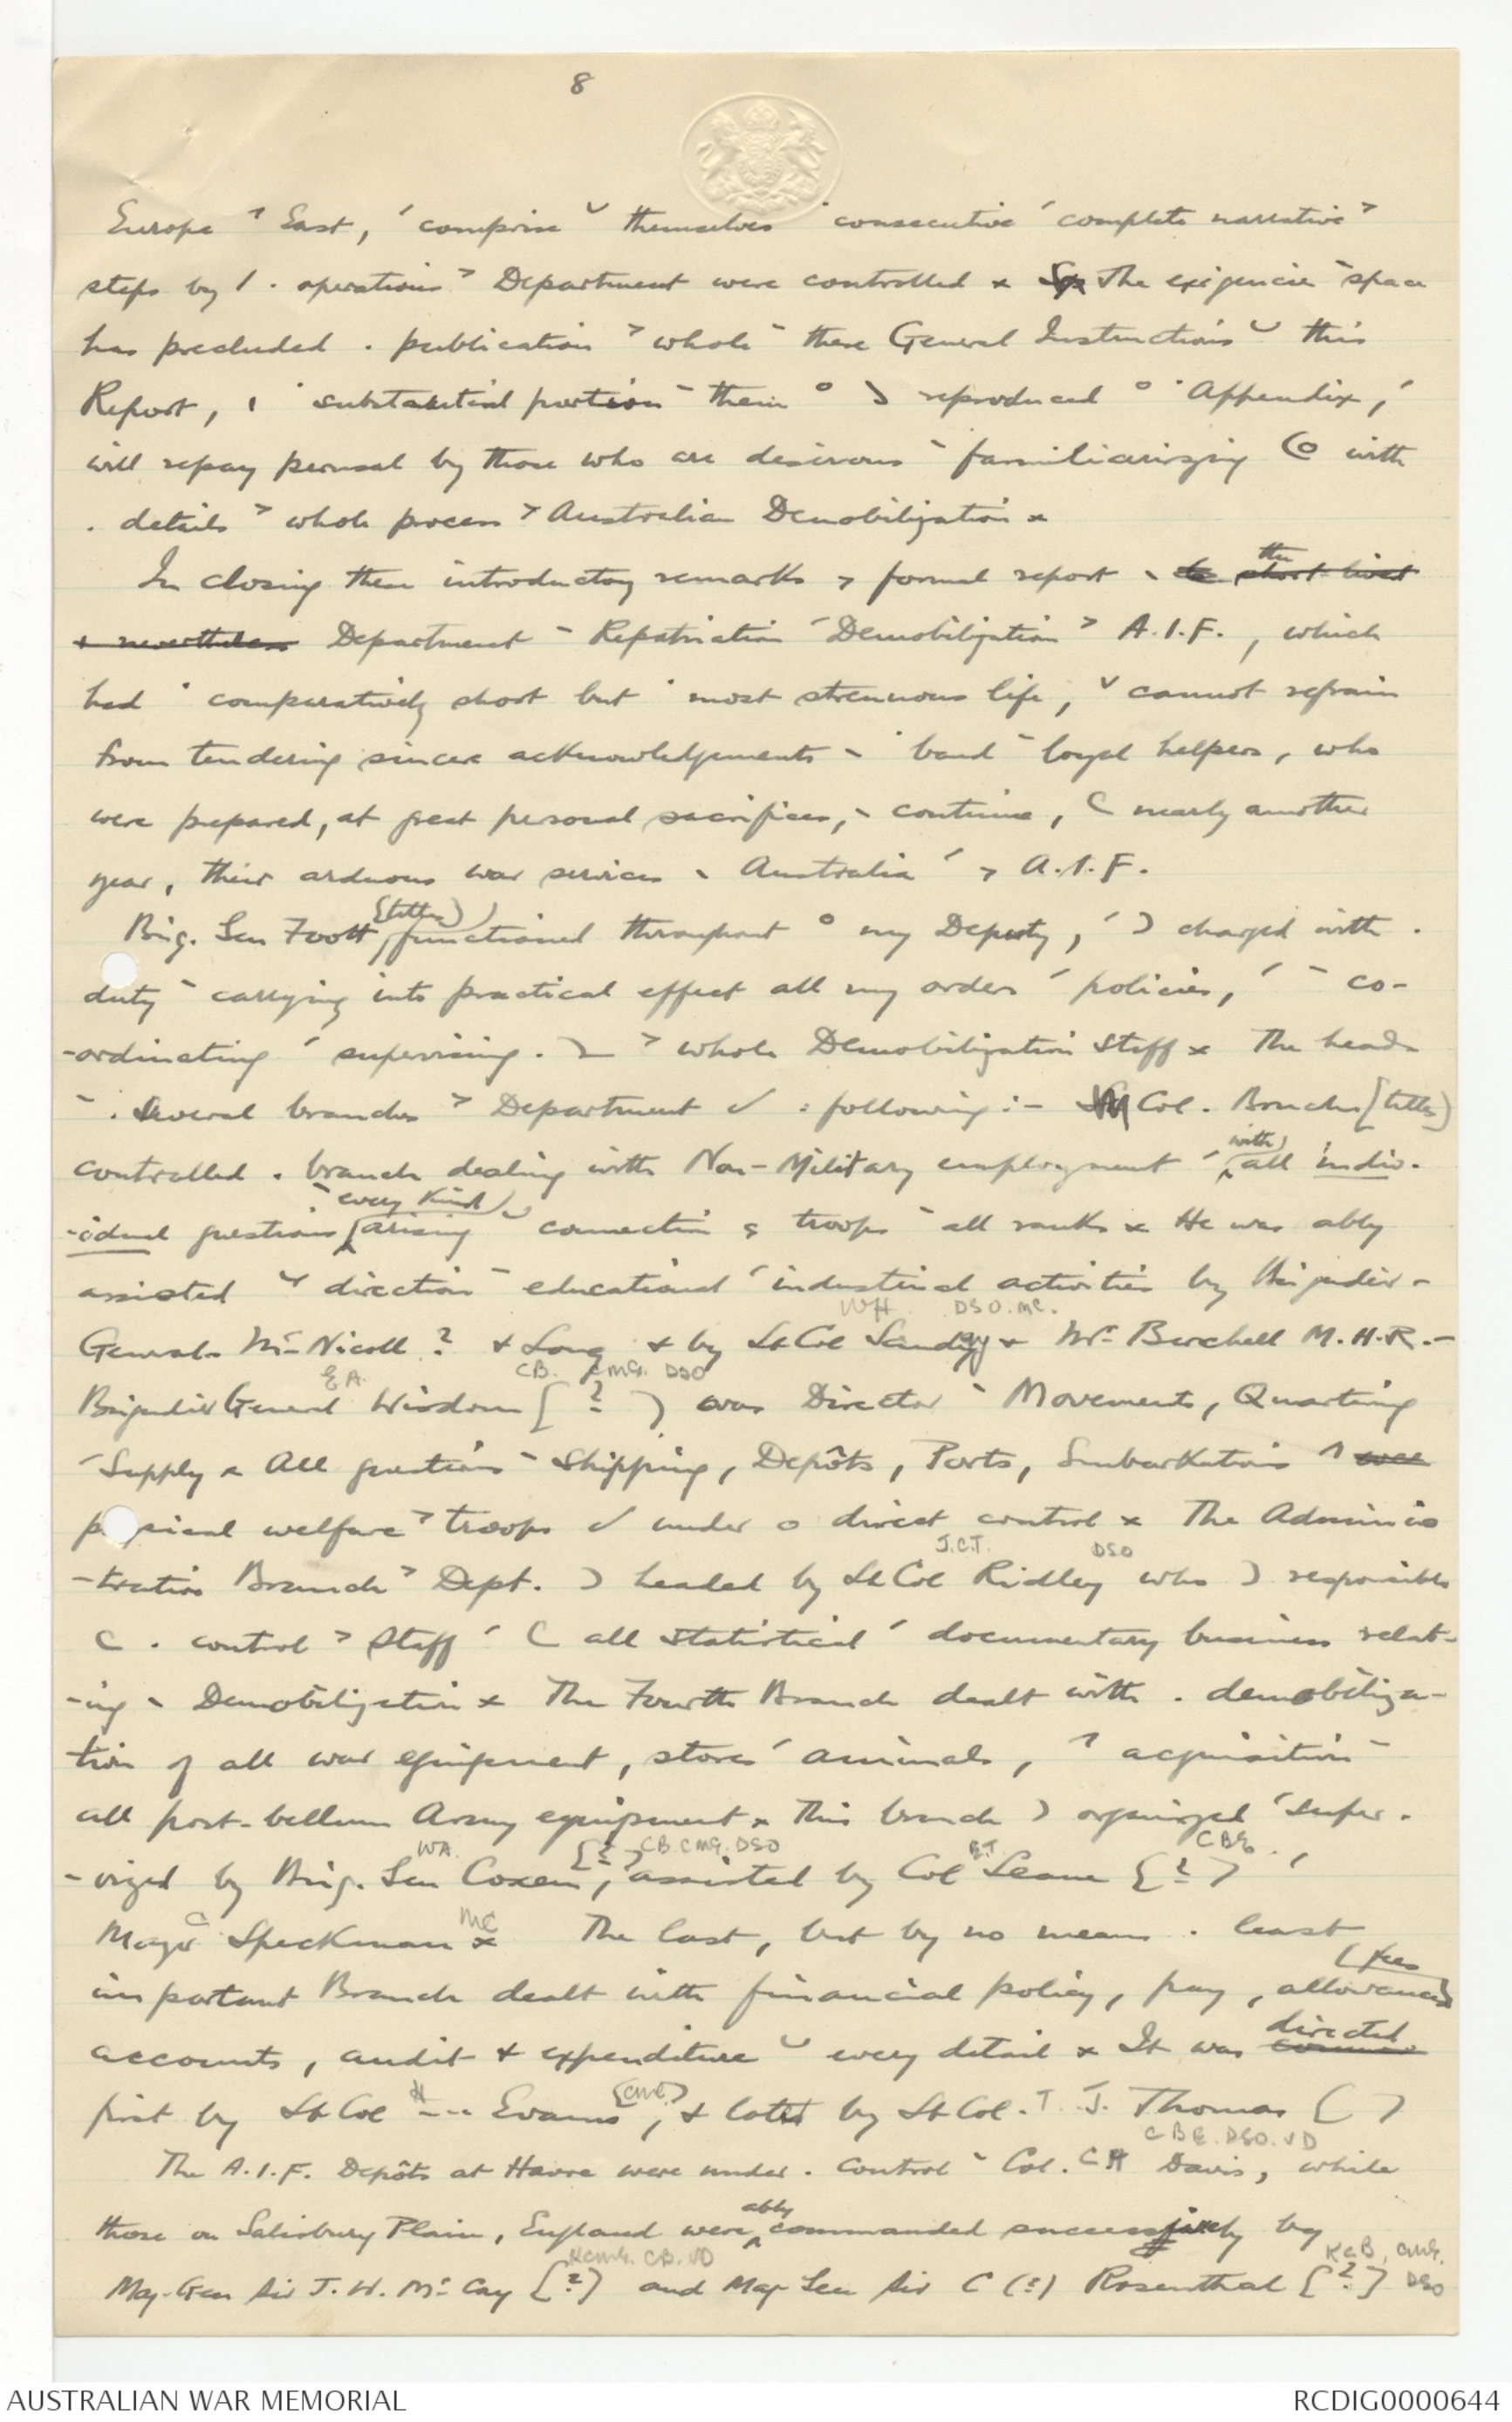 8
Europe East, comprise themselves consecutive complete narrative
steps by operations Department were controlled x The exigencies space
has precluded . publication whole these General Instructions this
Report, substantial portion them reproduced Appendix,
will repay perusal by those who are desirous familiarizing with
. details whole process Australian Demobilization x
In closing these introductory remarks formal report the short lived
+ nevertheless Department Repatriation Demobilization A.I.F., which
had comparatively short but most strenuous life, cannot refrain
from tendering sincere acknowledgements band loyal helpers, who
were prepared, at great personal sacrifices, continue, nearly another
year, their arduous war services Australia A.I.F.
Brig. Gen Foott (titles) functioned throughout my Deputy, charged with .
duty carrying into practical effect all my orders policies, co-
-ordinating supervising . whole Demobilization Staff x The heads
. Several branches Department : following :- Col. Bruche (titles)
controlled . branch dealing with Non-Military employment with all indiv-
-idual questions every kind arising connection troops all ranks x He was ably
assisted direction educational industrial activities by Brigadier-
WH DSO. MC.
Generals McNicoll ? + Long + by Lt Col Sandy + Mr Burchell M.H.R. -
E A. CB. CMG. DSO
Brigadier General Wisdom [ ? ) was Director Movements, Quartering
Supply x All questions Shipping, Depôts, Ports, Embarkations
physical welfare troops under direct control x The Adminis
J.C.T. DSO
-tration Branch Dept. ) headed by Lt Col Ridley who ) responsible
C . control Staff ( all statistical documentary business relat-
-ing Demobilization x The Fourth Branch dealt with . demobiliza-
tion of all war equipment, stores animals, acquisition
all post-bellum Army equipment x This branch ) organized super-
WA. [?] CB CMG. DSO E.T. CBE.
-vized by Brig. Gen Coxen, assisted by Col Leane { ? )
C MC
Major Speckman x The last, but by no means . least
important Branch dealt with financial policy, pay, allowances
accounts, audit + expenditure every detail x It was directed
first by Lt Col H --- Evans (CMG), + later by Lt Col. T. J. Thomas ( )
CBE. DSO. VD
The A.I.F. Depôts at Havre were under . control Col. C H Davis, while
those on Salisbury Plain, England were ably commanded successively by
KCMG. CB. VD KCB, CMG. DSO
Maj-Gen Sir J. W. McCay [?) and Maj Gen Sir C (?) Rosenthal [?]
AUSTRALIAN WAR MEMORIAL
RCDIG0000644